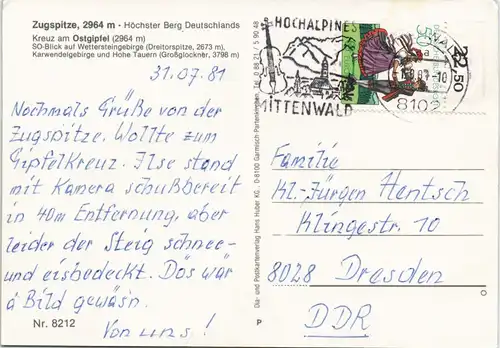 Zugspitze, 2964 m · Höchster Berg Deutschlands
Kreuz am Ostgipfel (2964 m)
SO-Blick auf Wettersteingebirge (Dreitorspitze, 2673 m),
Karwendelgebirge und Hohe Tauern (Großglockner, 3798 m)
31.07.81
Nochmals Grüße von der
Zugspitze. Wollte zum
Gipfelkreuz. Ilse stand
mit Kamera schußbereit
in 40m Entfernung, aber
leider der Steig schnee-
und eisbedeckt. Dös wär
a Bild gewäsn.
Von uns!
Nr. 8212
Dia- und Postkartenverlag Hans Huber KG, 8100 Garmisch-Partenkirchen, Tel. 0 88 21 / 5 90 48
P
HOCHALPINE
MITTENWALD
8102
Familie
Kl.-Jürgen Hentsch
Klingestr. 10
8028 Dresden
DDR